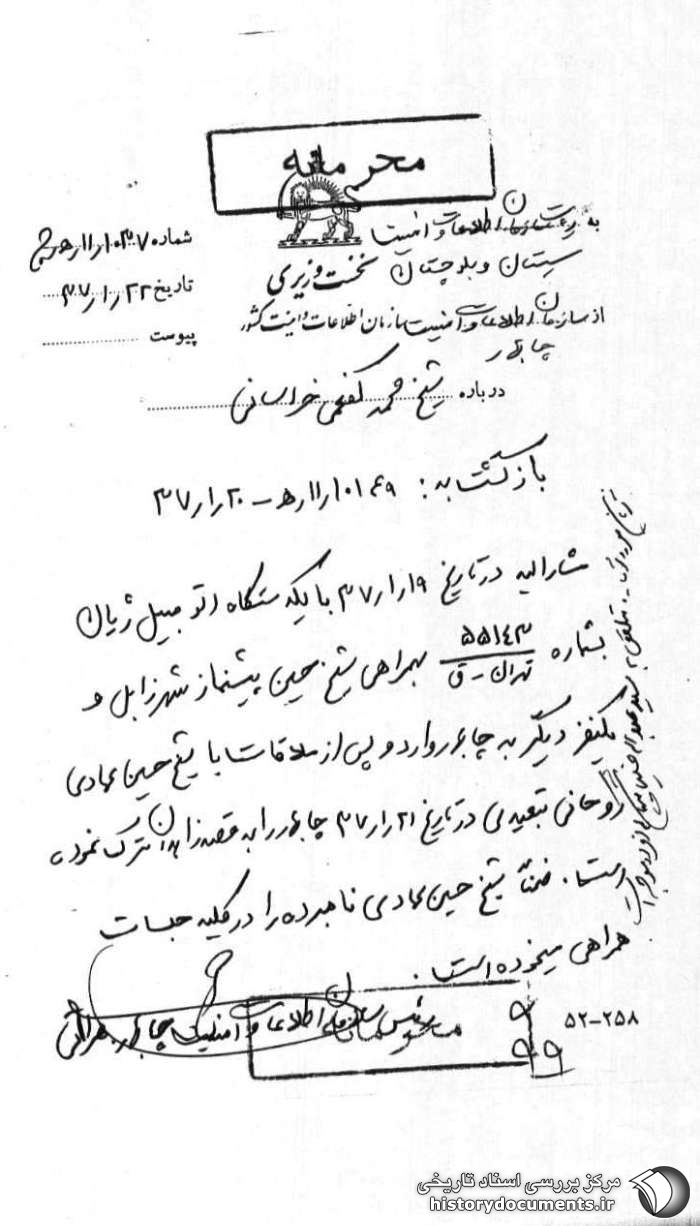 محرمانه
به ریاست سازمان اطلاعات و امنیت
سیستان و بلوچستان نخست وزیری
از سازمان اطلاعات و امنیت سازمان اطلاعات و امنیت کشور
چابهار
شماره
تاریخ ۳۷/۱/۲۲
پیوست
درباره شیخ محمد کفعمی خراسانی
بازگشت به: ۱۰۱۴۹/۱۱ه – ۳۷/۱/۲۰
مشارالیه در تاریخ ۳۷/۱/۱۹ با یکدستگاه اتومبیل ژیان
بشماره ۵۵۱۴۳ تهران – ق بهمراهی شیخ حسین پیشنماز شهر زابل و
یکنفر دیگر به چابهار وارد و پس از ملاقات با شیخ حسین عمادی
روحانی تبعیدی در تاریخ ۳۷/۱/۲۱ چابهار را به قصد زاهدان ترک نموده
است. ضمناً شیخ حسین عمادی نامبرده را در کلیه جلسات
همراهی مینموده است.
رئیس سازمان اطلاعات و امنیت چابهار
۵۲-۲۵۸
مرکز بررسی اسناد تاریخی
historydocuments.ir